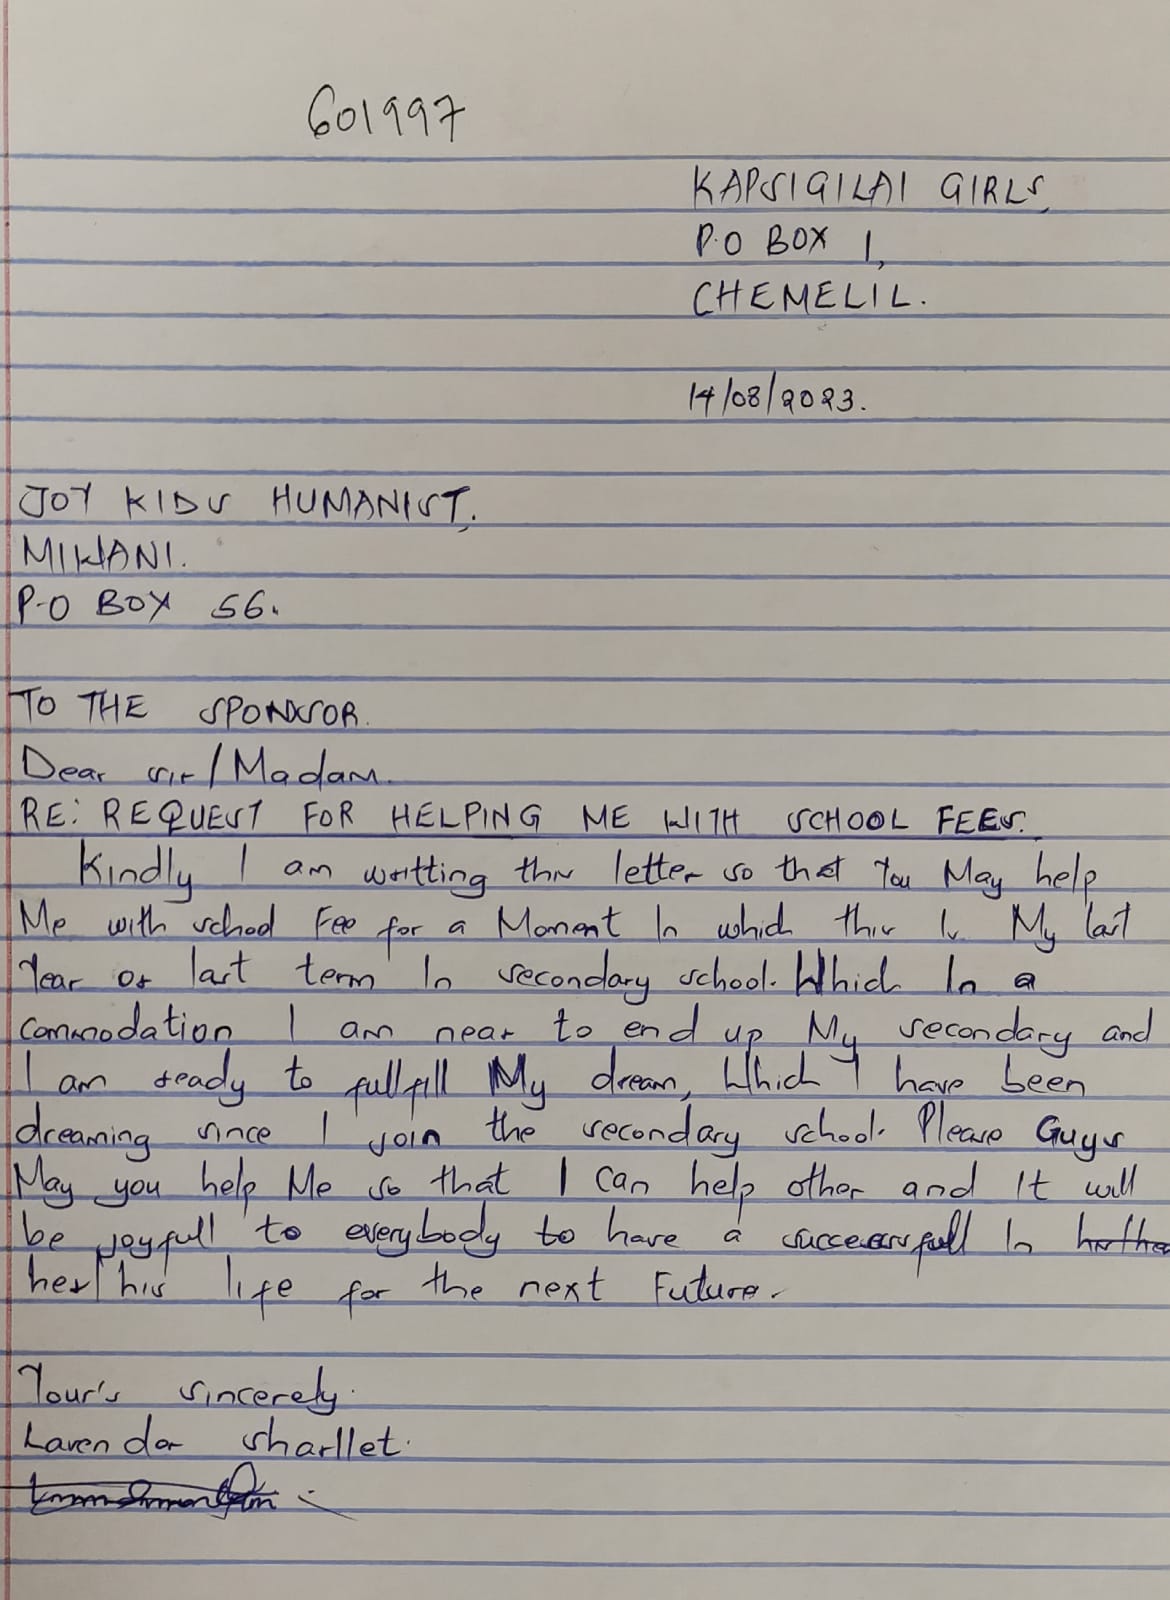 601997
KAPSIGILAI GIRLS,
P.O BOX 1,
CHEMELIL.
14/08/2023.
JOY KIDS HUMANIST,
MIWANI.
P.O BOX 56.
TO THE SPONSOR.
Dear sir/Madam.
RE: REQUEST FOR HELPING ME WITH SCHOOL FEES.
Kindly I am writting this letter so that You May help
Me with school Fee for a Moment In which this Is My last
Year or last term In secondary school. Which In a
commodation I am near to end up My secondary and
I am ready to fullfill My dream, Which I have been
dreaming since I join the secondary school. Please Guys
May you help Me so that I can help other and It will
be joyfull to everybody to have a successfull In
her/his life for the next Future.
Your's sincerely.
Lavender sharllet.